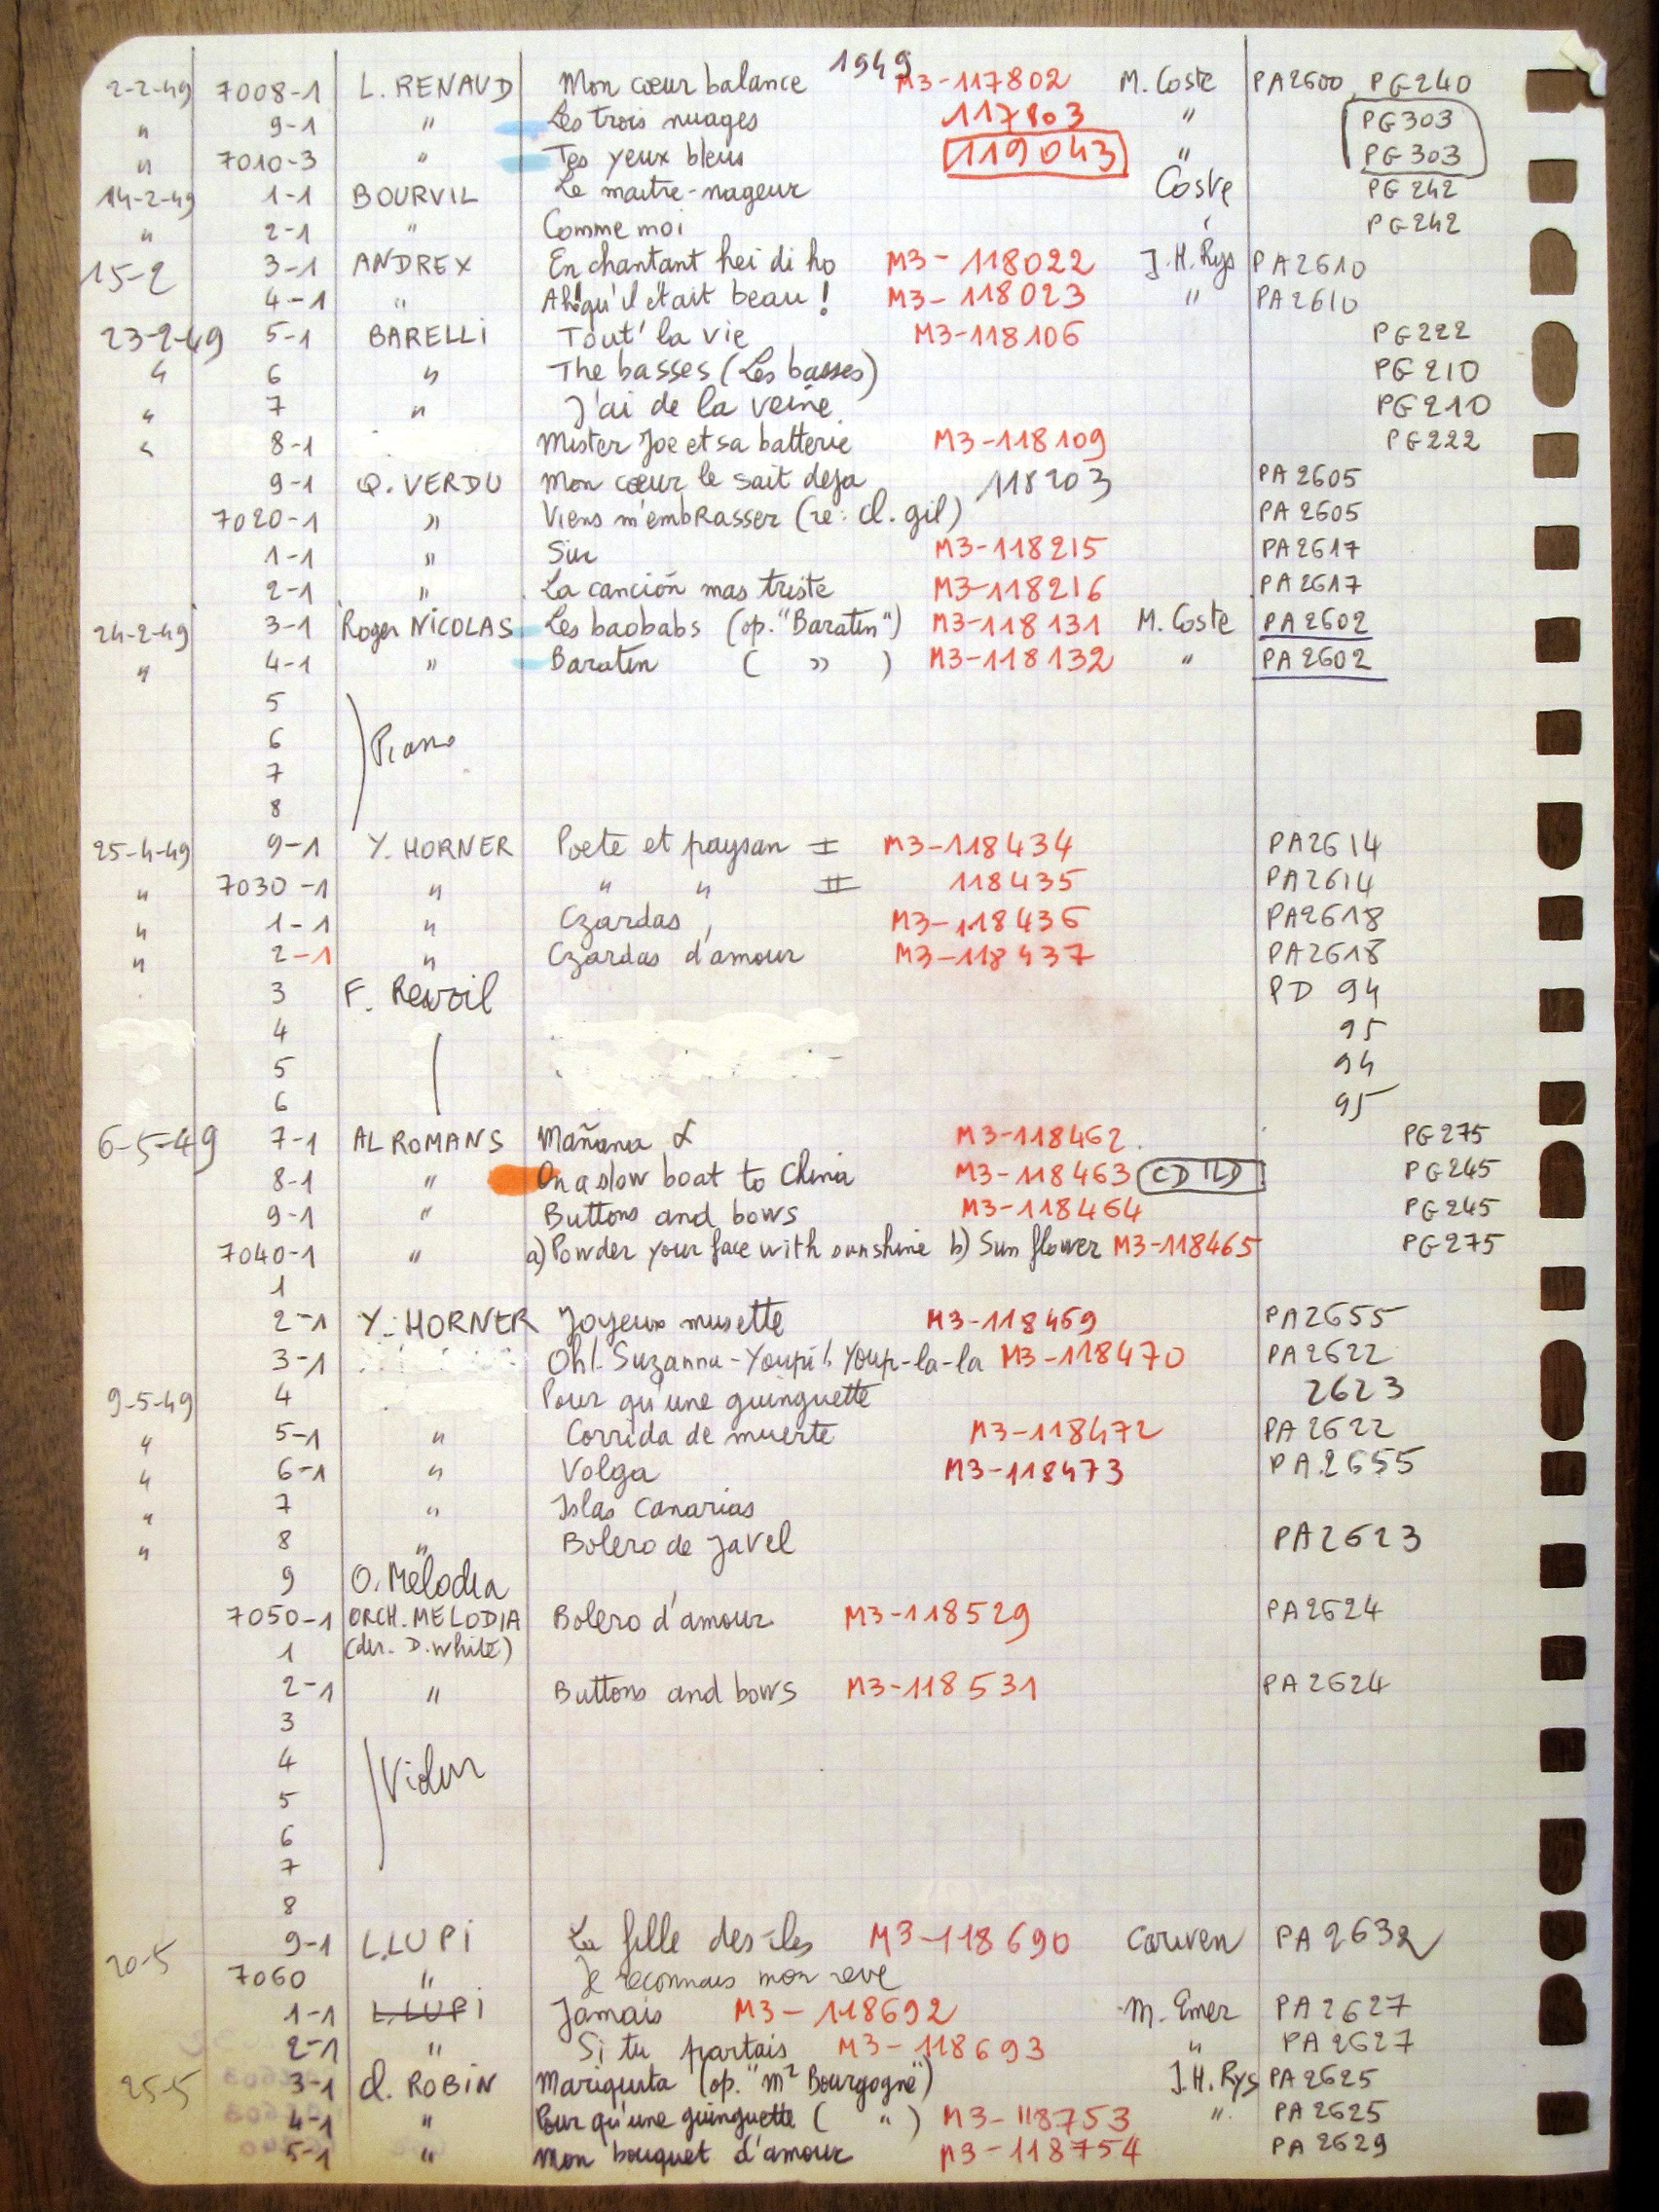 1949
2-2-49 7008-1 L. RENAUD Mon cœur balance M3-117802 M. Coste PA2600 PG240
" 9-1 " Les trois nuages 117803 " PG303
" 7010-3 " Tes yeux bleus 119043 " PG303
14-2-49 1-1 BOURVIL Le maitre-nageur Coste PG242
" 2-1 " Comme moi PG242
15-2 3-1 ANDREX En chantant hei di ho M3-118022 J.H. Rys PA2610
4-1 " Ah! qu'il était beau! M3-118023 " PA2610
23-2-49 5-1 BARELLI Tout' la vie M3-118106 PG222
" 6 " The basses (Les basses) PG210
" 7 " J'ai de la veine PG210
" 8-1 Mister Joe et sa batterie M3-118109 PG222
9-1 Q. VERDU Mon cœur le sait deja 118203 PA2605
7020-1 " Viens m'embrasser (re: cl. gil) PA2605
1-1 " Sur M3-118215 PA2617
2-1 " La canción mas triste M3-118216 PA2617
24-2-49 3-1 Roger NICOLAS Les baobabs (op. "Baratin") M3-118131 M. Coste PA2602
" 4-1 " Baratin ( " ) M3-118132 " PA2602
5
6 Piano
7
8
25-4-49 9-1 Y. HORNER Poete et paysan I M3-118434 PA2614
" 7030-1 " " " II 118435 PA2614
" 1-1 " Czardas M3-118436 PA2618
" 2-1 " Czardas d'amour M3-118437 PA2618
3 F. Revoil PD 94
4 95
5 94
6 95
6-5-49 7-1 AL ROMANS Mañana M3-118462 PG275
8-1 " On a slow boat to China M3-118463 CD ILD PG245
9-1 " Buttons and bows M3-118464 PG245
7040-1 " a) Powder your face with sunshine b) Sun flower M3-118465 PG275
1
2-1 Y. HORNER Joyeux musette M3-118469 PA2655
3-1 Oh! Suzanna - Youpi! Youp-la-la M3-118470 PA2622
9-5-49 4 Pour qu'une guinguette 2623
" 5-1 " Corrida de muerte M3-118472 PA2622
" 6-1 " Volga M3-118473 PA.2655
" 7 " Islas Canarias
" 8 " Bolero de Javel PA2623
9 O. Mélodia
7050-1 ORCH. MELODIA Bolero d'amour M3-118529 PA2624
1 (dir. D. White)
2-1 " Buttons and bows M3-118531 PA2624
3
4 Violon
5
6
7
8
20-5 9-1 L. LUPI La fille des îles M3-118690 Cariven PA2632
7060 " Je reconnais mon reve
1-1 L. LUPI Jamais M3-118692 M. Emer PA2627
2-1 " Si tu partais M3-118693 " PA2627
25-5 3-1 Cl. ROBIN Mariquita (op. "Mr Bourgogne") J.H. Rys PA2625
4-1 " Pour qu'une guinguette ( " ) M3-118753 " PA2625
5-1 " Mon bouquet d'amour M3-118754 PA2629